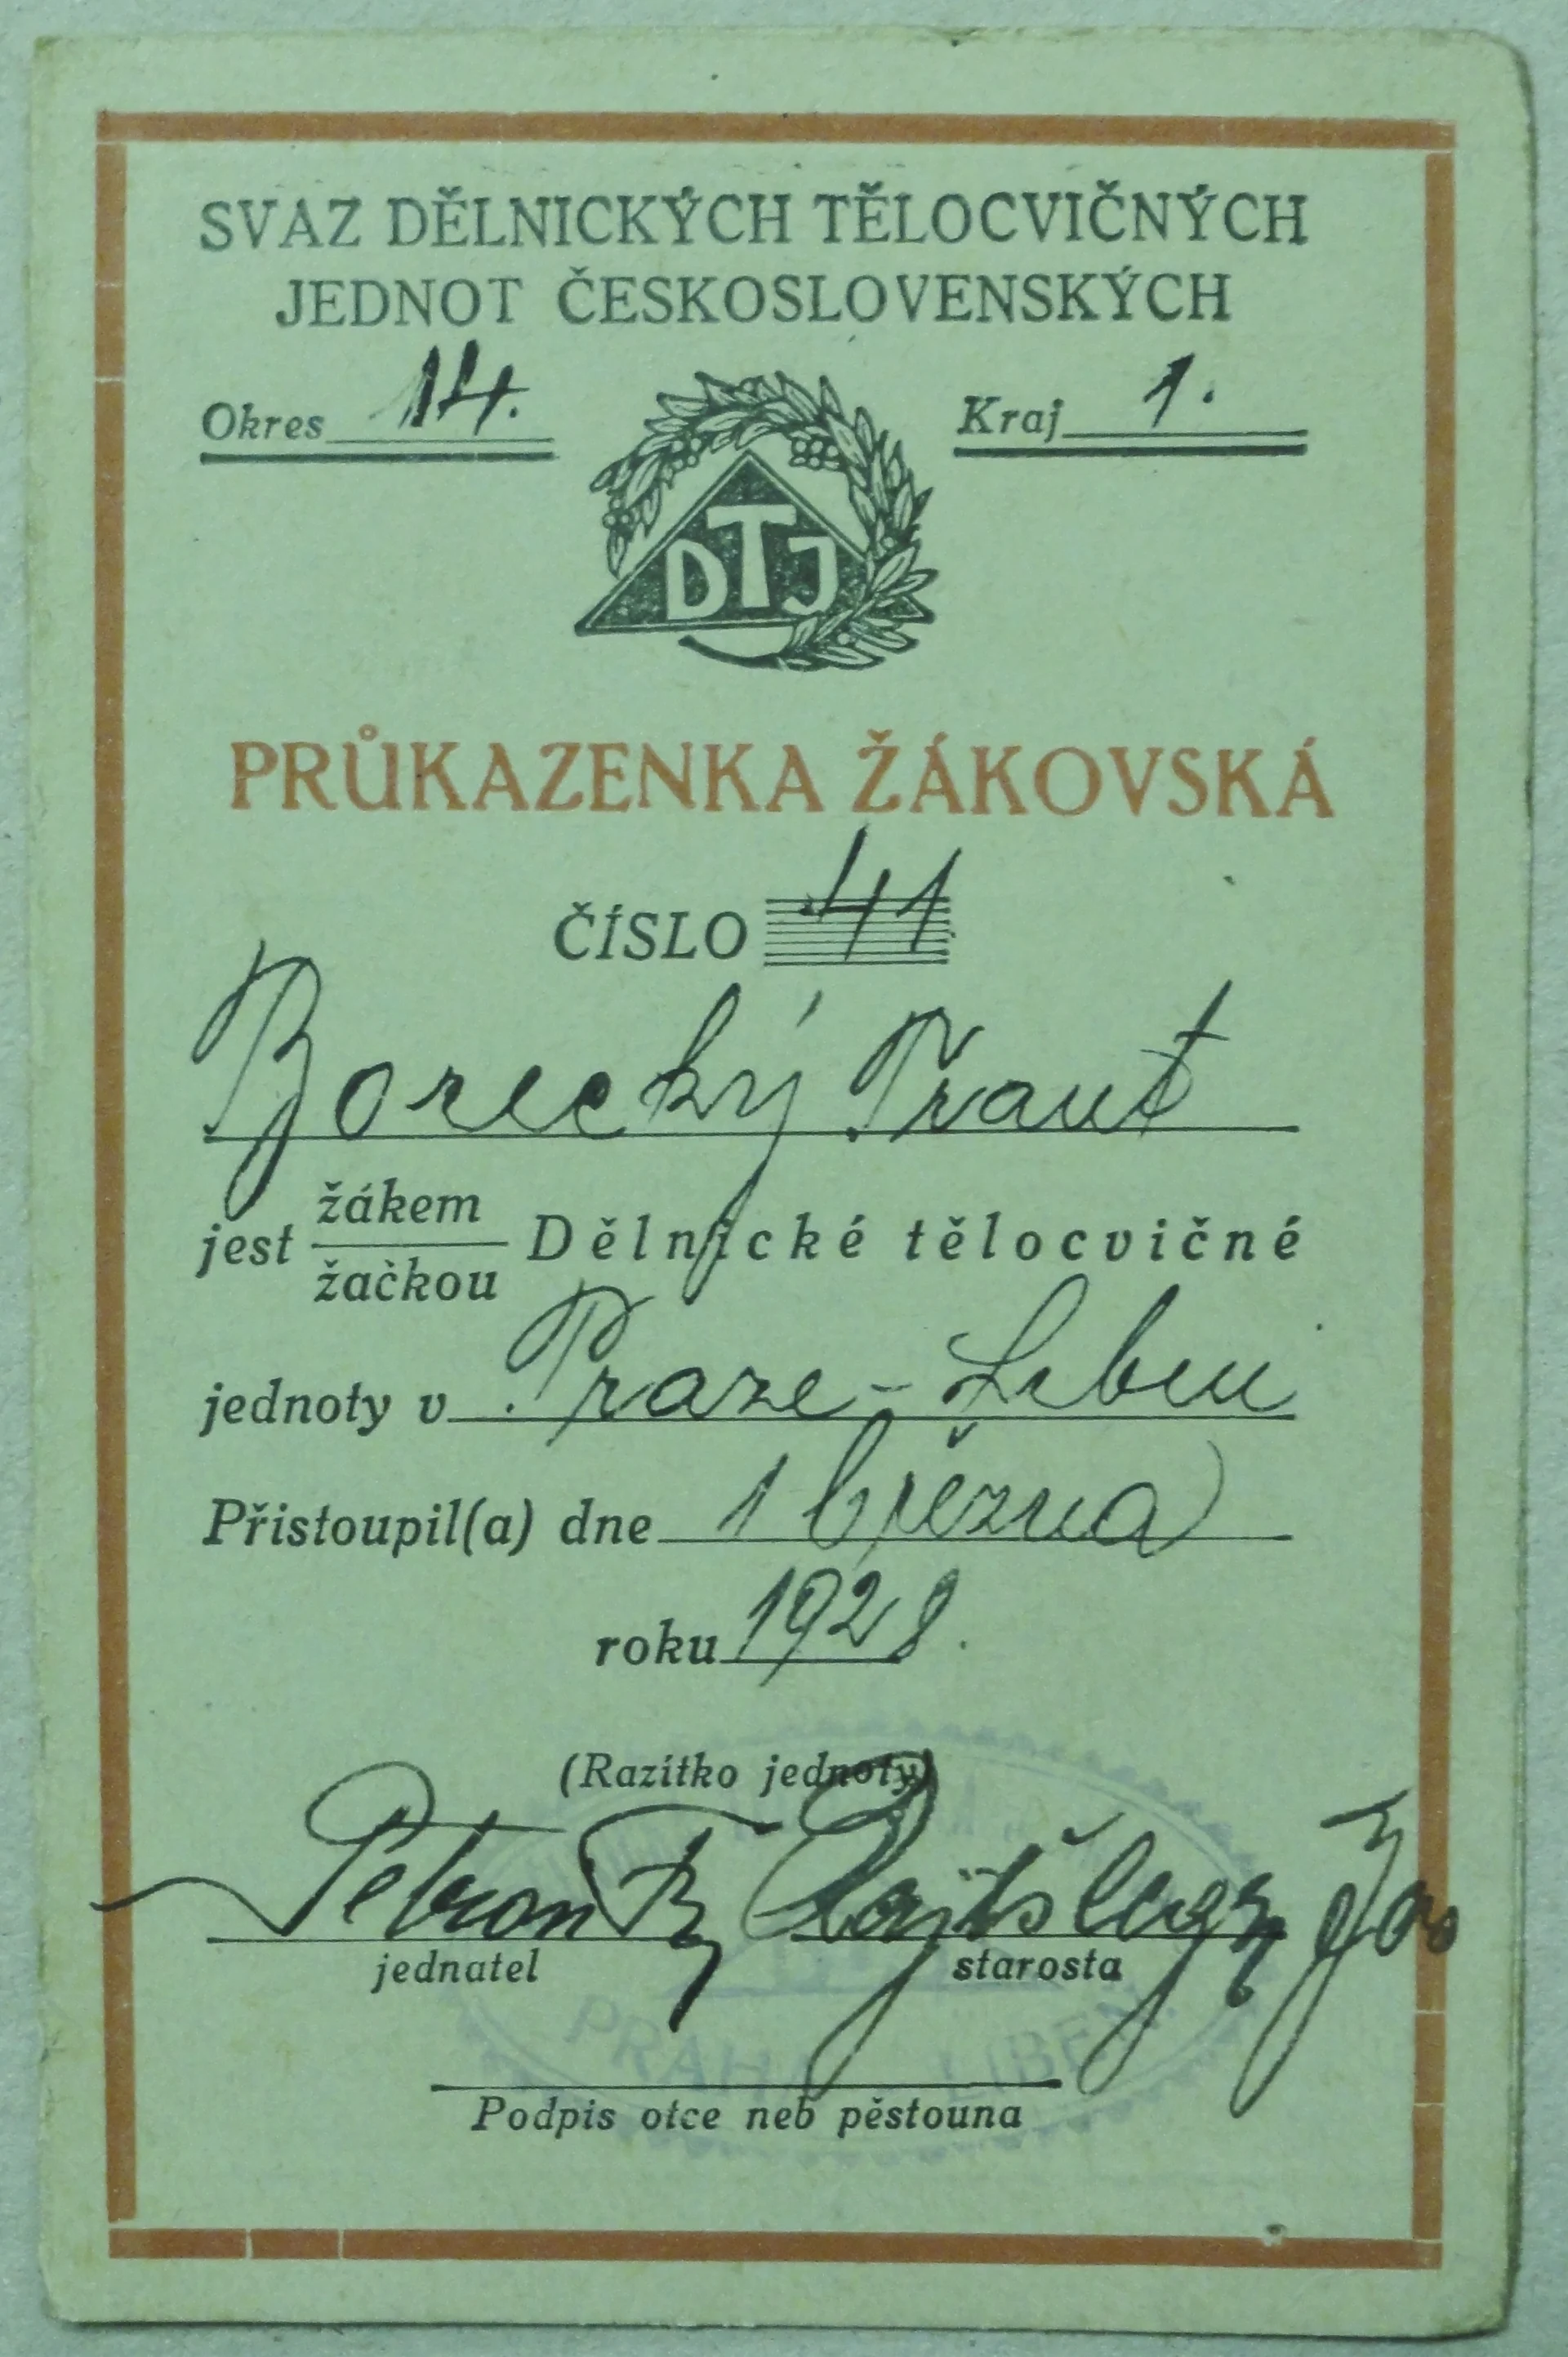 SVAZ DĚLNICKÝCH TĚLOCVIČNÝCH
JEDNOT ČESKOSLOVENSKÝCH
Okres 14. Kraj 1.
DTJ
PRŮKAZENKA ŽÁKOVSKÁ
ČÍSLO 41
Borecký Frant
jest žákem
žačkou Dělnické tělocvičné
jednoty v Praze-Libni
Přistoupil(a) dne 1 března
roku 1928.
(Razítko jednoty)
jednatel starosta
PRAHA LIBEŇ
Podpis otce neb pěstouna